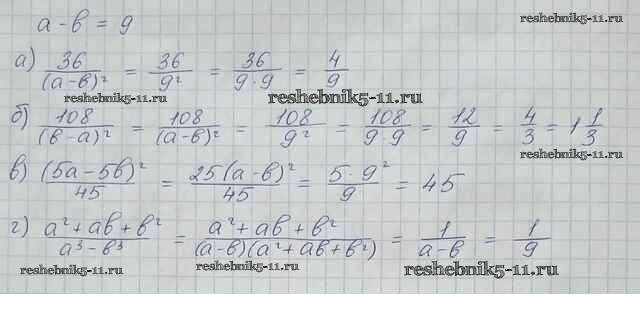 a - b = 9
reshebnik5-11.ru
а) 36/(a-b)² = 36/9² = 36/(9·9) = 4/9
reshebnik5-11.ru
reshebnik5-11.ru
б) 108/(b-a)² = 108/(a-b)² = 108/9² = 108/(9·9) = 12/9 = 4/3 = 1 1/3
reshebnik5-11.ru
в) (5a-5b)²/45 = 25(a-b)²/45 = 5·9²/9 = 45
г) (a²+ab+b²)/(a³-b³) = (a²+ab+b²)/((a-b)(a²+ab+b²)) = 1/(a-b) = 1/9
reshebnik5-11.ru
reshebnik5-11.ru
reshebnik5-11.ru